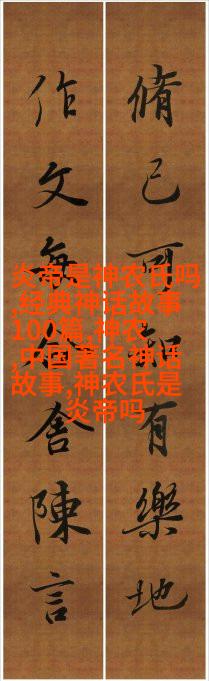 脩己可知有樂地
作文舍陳言
炎帝是神农氏吗
,经典神话故事
100篇,神农
,中国著名神话
故事,神农氏是
炎帝吗